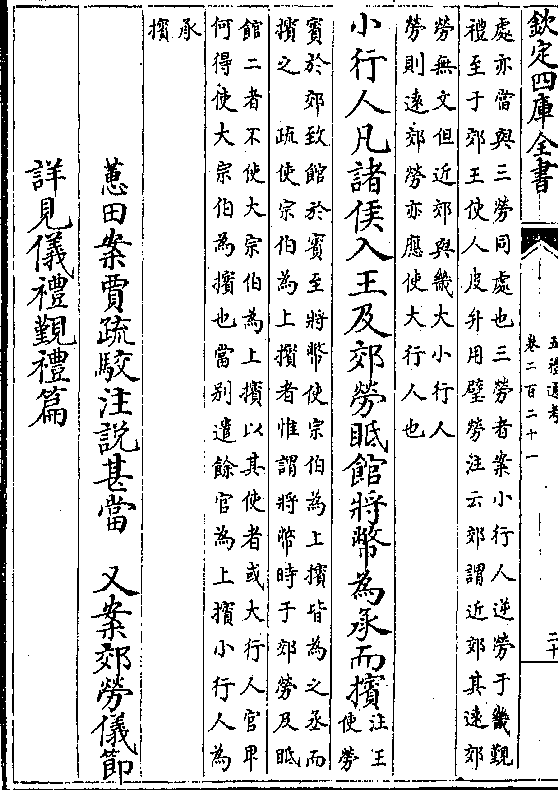 欽定四庫全書
五禮通考
卷二百二十一
二十
處亦當與三勞同處也三勞者案小行人逆勞于畿覲
禮至于郊王使人皮弁用璧勞注云郊謂近郊其遠郊
勞無文但近郊與畿大小行人
勞則遠郊勞亦應使大行人也
小行人凡諸侯入王及郊勞眡館將幣為承而擯
注王
使勞
賓於郊致館於賓至將幣使宗伯為上擯皆為之丞而
擯之　疏使宗伯為上擯者惟謂將幣時于郊勞及眡
館二者不使大宗伯為上擯以其使者或大行人官卑
何得使大宗伯為擯也當別遣餘官為上擯小行人為
承
擯
蕙田案賈疏駮注說甚當　又案郊勞儀節
詳見儀禮覲禮篇